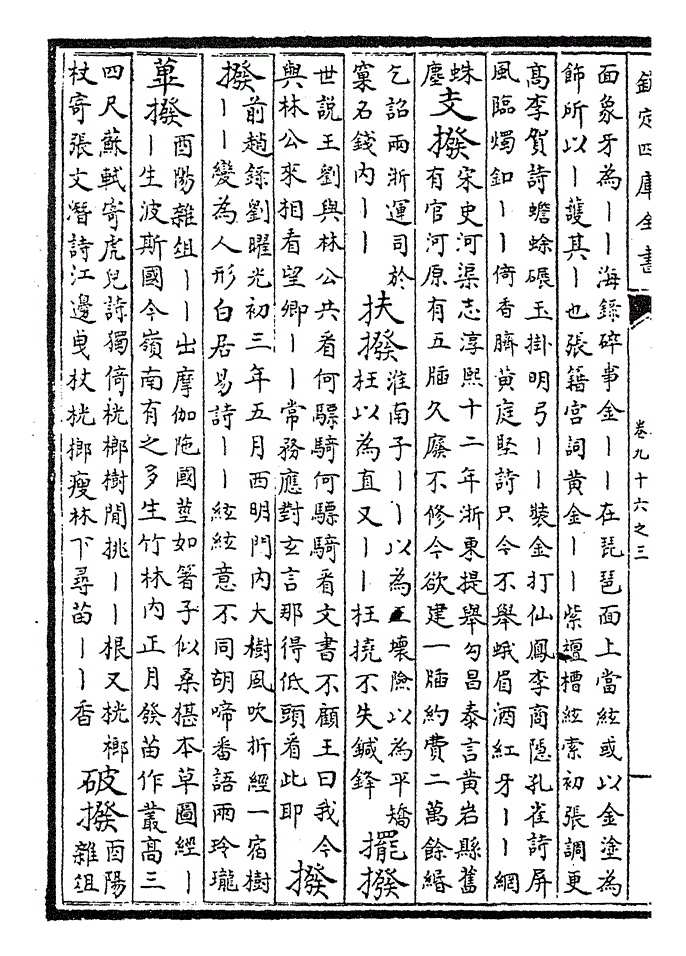 欽定四庫全書
卷九十六之三
面象牙為丨丨海錄碎事金丨丨在琵琶面上當絃或以金塗為
飾所以丨護其丨也張籍宮詞黃金丨丨紫檀槽絃索初張調更
高李賀詩蟾蜍碾玉掛明弓丨丨裝金打仙鳳李商隱孔雀詩屏
風臨燭釦丨丨倚香臍黃庭堅詩只今不舉蛾眉酒紅牙丨丨網
蛛
塵
支撥
宋史河渠志淳熙十二年浙東提舉勾昌泰言黃岩縣舊
有官河原有五牐久廢不修今欲建一牐約費二萬餘緡
乞詔兩浙運司於
窠石錢內丨丨
扶撥
淮南子丨丨以為正壞險以為平矯
枉以為直又丨丨枉撓不失鍼鋒
擺撥
世說王劉與林公共看何驃騎何驃騎看文書不顧王曰我今
與林公來相看望卿丨丨常務應對玄言那得低頭看此耶
撥
撥
前趙錄劉曜光初三年五月西明門內大樹風吹折經一宿樹
丨丨變為人形白居易詩丨丨絃絃意不同胡啼番語兩玲瓏
蓽撥
酉陽雜俎丨丨出摩伽陁國莖如箸子似桑椹本草圖經丨
丨生波斯國今嶺南有之多生竹林內正月發苗作叢高三
四尺蘇軾寄虎兒詩獨倚桄榔樹閒挑丨丨根又桄榔
杖寄張文潛詩江邊曳杖桄榔瘦林下尋苗丨丨香
破撥
酉陽
雜俎